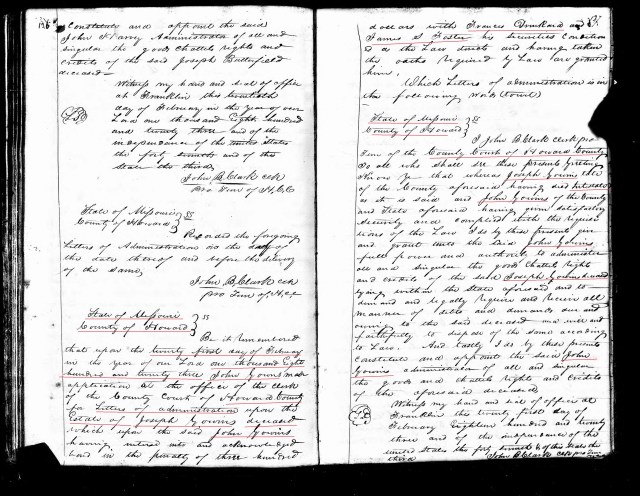 126
Constitute and appoint the said
John Harvy Administrator of all and
singular the goods Chattel rights and
credits of the said Joseph Butterfield
deceased
Witness my hand and seal of office
at Franklin this twentieth
day of February in the year of our
Lord one thousand Eight hundred
and twenty three and of the
independence of the United States
the forty seventh and of the
State the third
John B Clark clk
pro Tem of H.C.C
State of Missouri
County of Howard } SS
Recorded the forgoing
Letters of Administration on the day of
the date thereof and before the delivery
of the same
John B, Clark clk
pro Tem of H.C.C
State of Missouri
County of Howard } SS
Be it remembered
that upon the twenty first day of February
in the year of our Lord one thousand Eight
hundred and twenty three John Govins made
application at the office of the clerk
of the County Court of Howard County
for Letters of administration upon the
Estate of Joseph Govins deceased
which upon the said John Govins
having entered into and acknowledged
bond in the penalty of three hundred
dollars with Frances and
James S Foster his securities Condition
d as the Law directs and having taken
the oaths required by Law are granted
him,
Which Letters of administration is in
the following words (towit)
State of Missouri
County of Howard } SS
I John B. Clark clerk pro
Tem of the County Court of Howard County
To all who shall see these presents Greeting
Know ye that whereas Joseph Govins late
of the County aforesaid having died intestate
as it is said and John Govins of the County
and State aforesaid having given satisfactory
security and complied with the requisi
tions of the Law I do by these presents give
and grant unto the said John Govins
full power and authority to administer
all and singular the goods chattel rights
and credits of the said Joseph Govins deceased
lying within the state aforesaid and to
demand and legally require and receive all
manner of debts and demands due and
owing to the said deceased and well and
faithfully to dispose of the same according
to Law. And lastly I do by these presents
constitute and appoint the said John
Govins administrator of all and singular
the goods and chattle rights and credits
of the aforesaid deceased
Witness my hand and seal of office at
Franklin this twenty first day of
February eighteen hundred and twenty
three and of the independence of the
united states the forty seventh & of this State the
third John B. Clark clk pro Tem